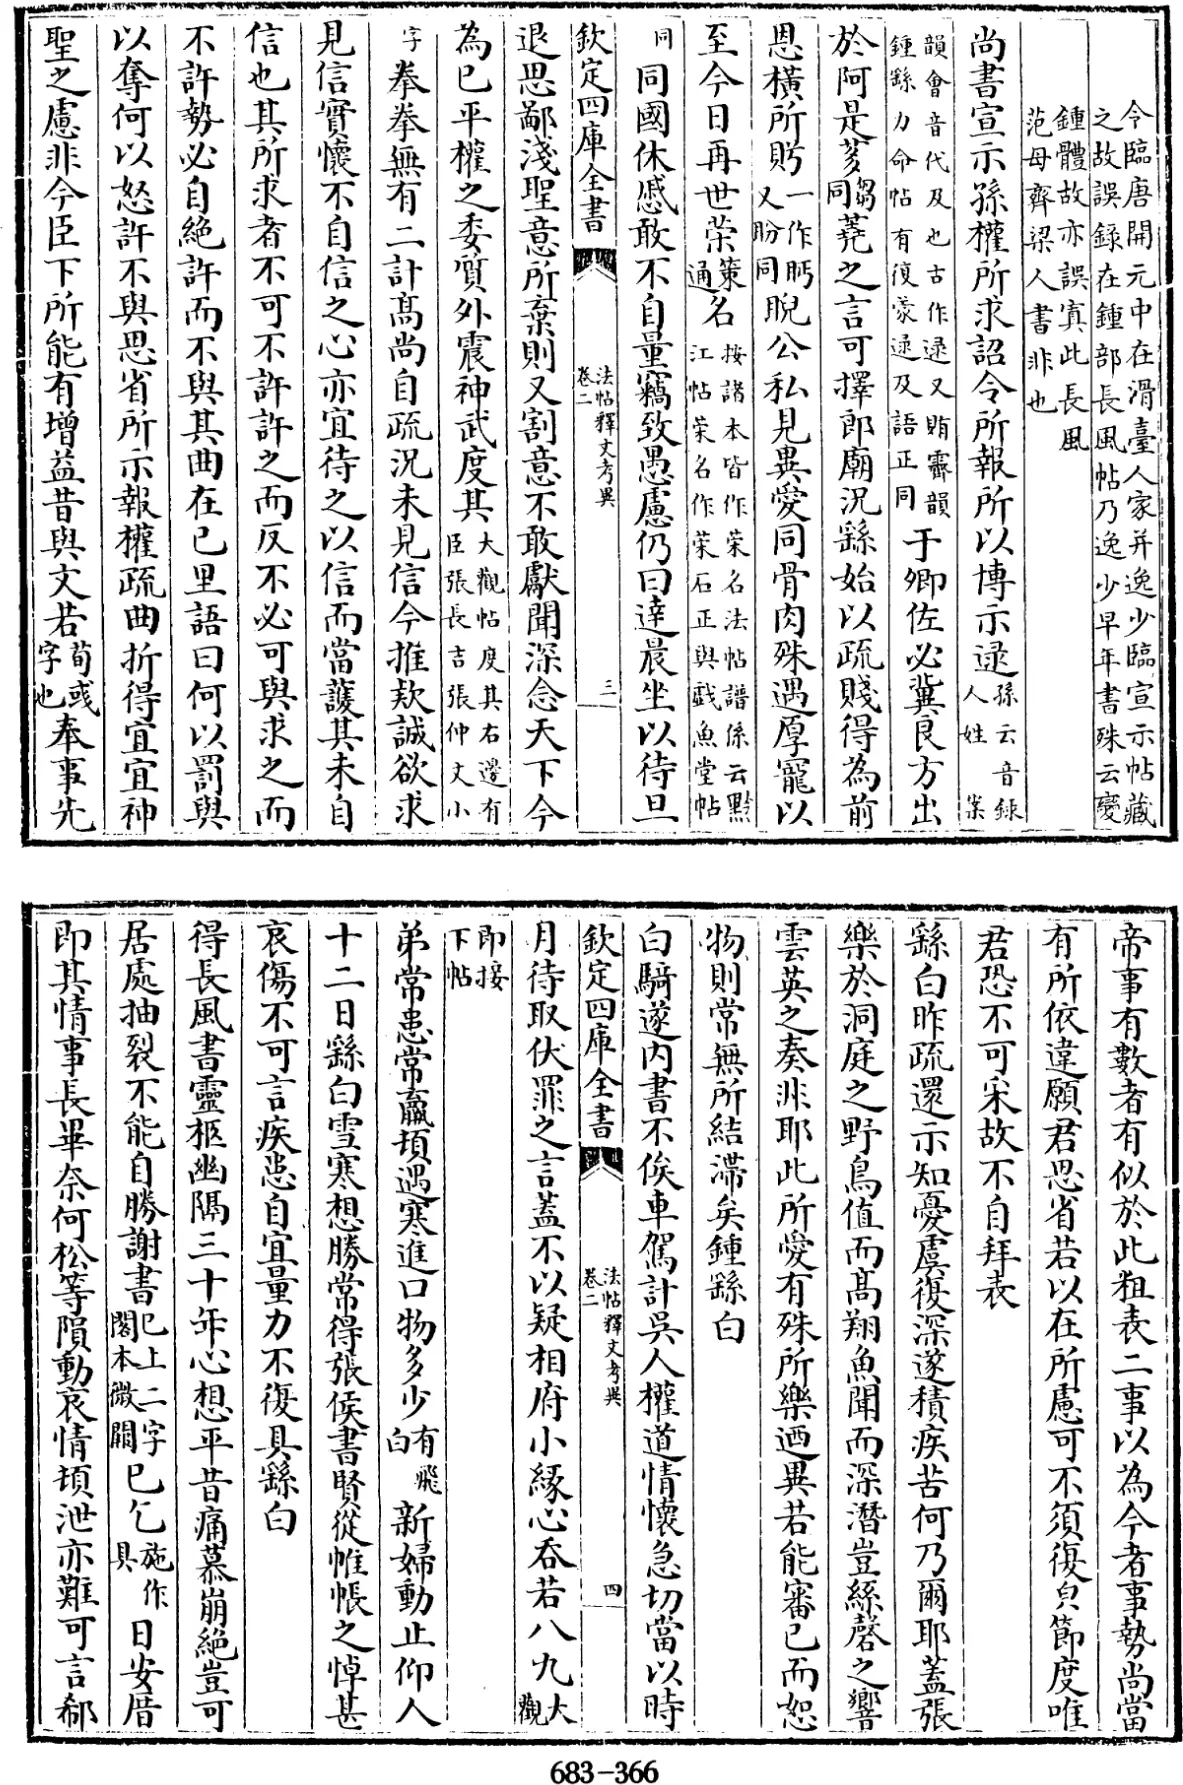 今臨唐開元中在滑臺人家并逸少臨宣示帖藏
之故誤錄在鍾部長風帖乃逸少早年書殊云變
鍾體故亦誤寘此長風
范母齊梁人書非也
尚書宣示孫權所求詔令所報所以博示逯孫云音錄人姓案
韻會音代及也古作逯又賄霽韻鍾繇力命帖有復蒙逯及語正同于卿佐必冀良方出
於阿是芻同蒭蕘之言可擇郎廟況繇始以疏賤得為前
恩橫所貯一作眄又盻同睨公私見異愛同骨肉殊遇厚寵以
至今日再世榮策通名按諸本皆作榮名法帖譜係云黔江帖榮名作榮石正與戲魚堂帖
同同國休慼敢不自量竊致愚慮仍曰達晨坐以待旦
欽定四庫全書 法帖釋文考異 卷二 三
退思鄙淺聖意所棄則又割意不敢獻聞深念天下今
為已平權之委質外震神武度其大觀帖度其右邊有臣張長吉張仲文小
字拳拳無有二計高尚自疏況未見信今推欵誠欲求
見信實懷不自信之心亦宜待之以信而當護其未自
信也其所求者不可不許許之而反不必可與求之而
不許勢必自絕許而不與其曲在已里語曰何以罰與
以奪何以怒許不與思省所示報權疏曲折得宜宜神
聖之慮非今臣下所能有增益昔與文若荀彧字也奉事先
帝事有數者有似於此粗表二事以為今者事勢尚當
有所依違願君思省若以在所慮可不須復貞節度唯
君恐不可采故不自拜表
繇白昨疏還示知憂虞復深遂積疾苦何乃爾耶蓋張
樂於洞庭之野鳥值而高翔魚聞而深潛豈絲磬之響
雲英之奏非耶此所愛有殊所樂迺異若能審己而恕
物則常無所結滯矣鍾繇白
白騎遂內書不俟車駕計吳人權道情懷急切當以時
欽定四庫全書 法帖釋文考異 卷二 四
月待取伏罪之言蓋不以疑相府小緣心吞若八九大觀
即接下帖
弟常患常羸頃遇寒進口物多少有飛白新婦動止仰人
十二日繇白雪寒想勝常得張侯書賢從帷帳之悼甚
哀傷不可言疾患自宜量力不復具繇白
得長風書靈柩幽隔三十年心想平昔痛慕崩絕豈可
居處抽裂不能自勝謝書已上二字閣本微闕已乞施作具日安厝
即其情事長畢奈何松等隕動哀情頃泄亦難可言郗
683-366